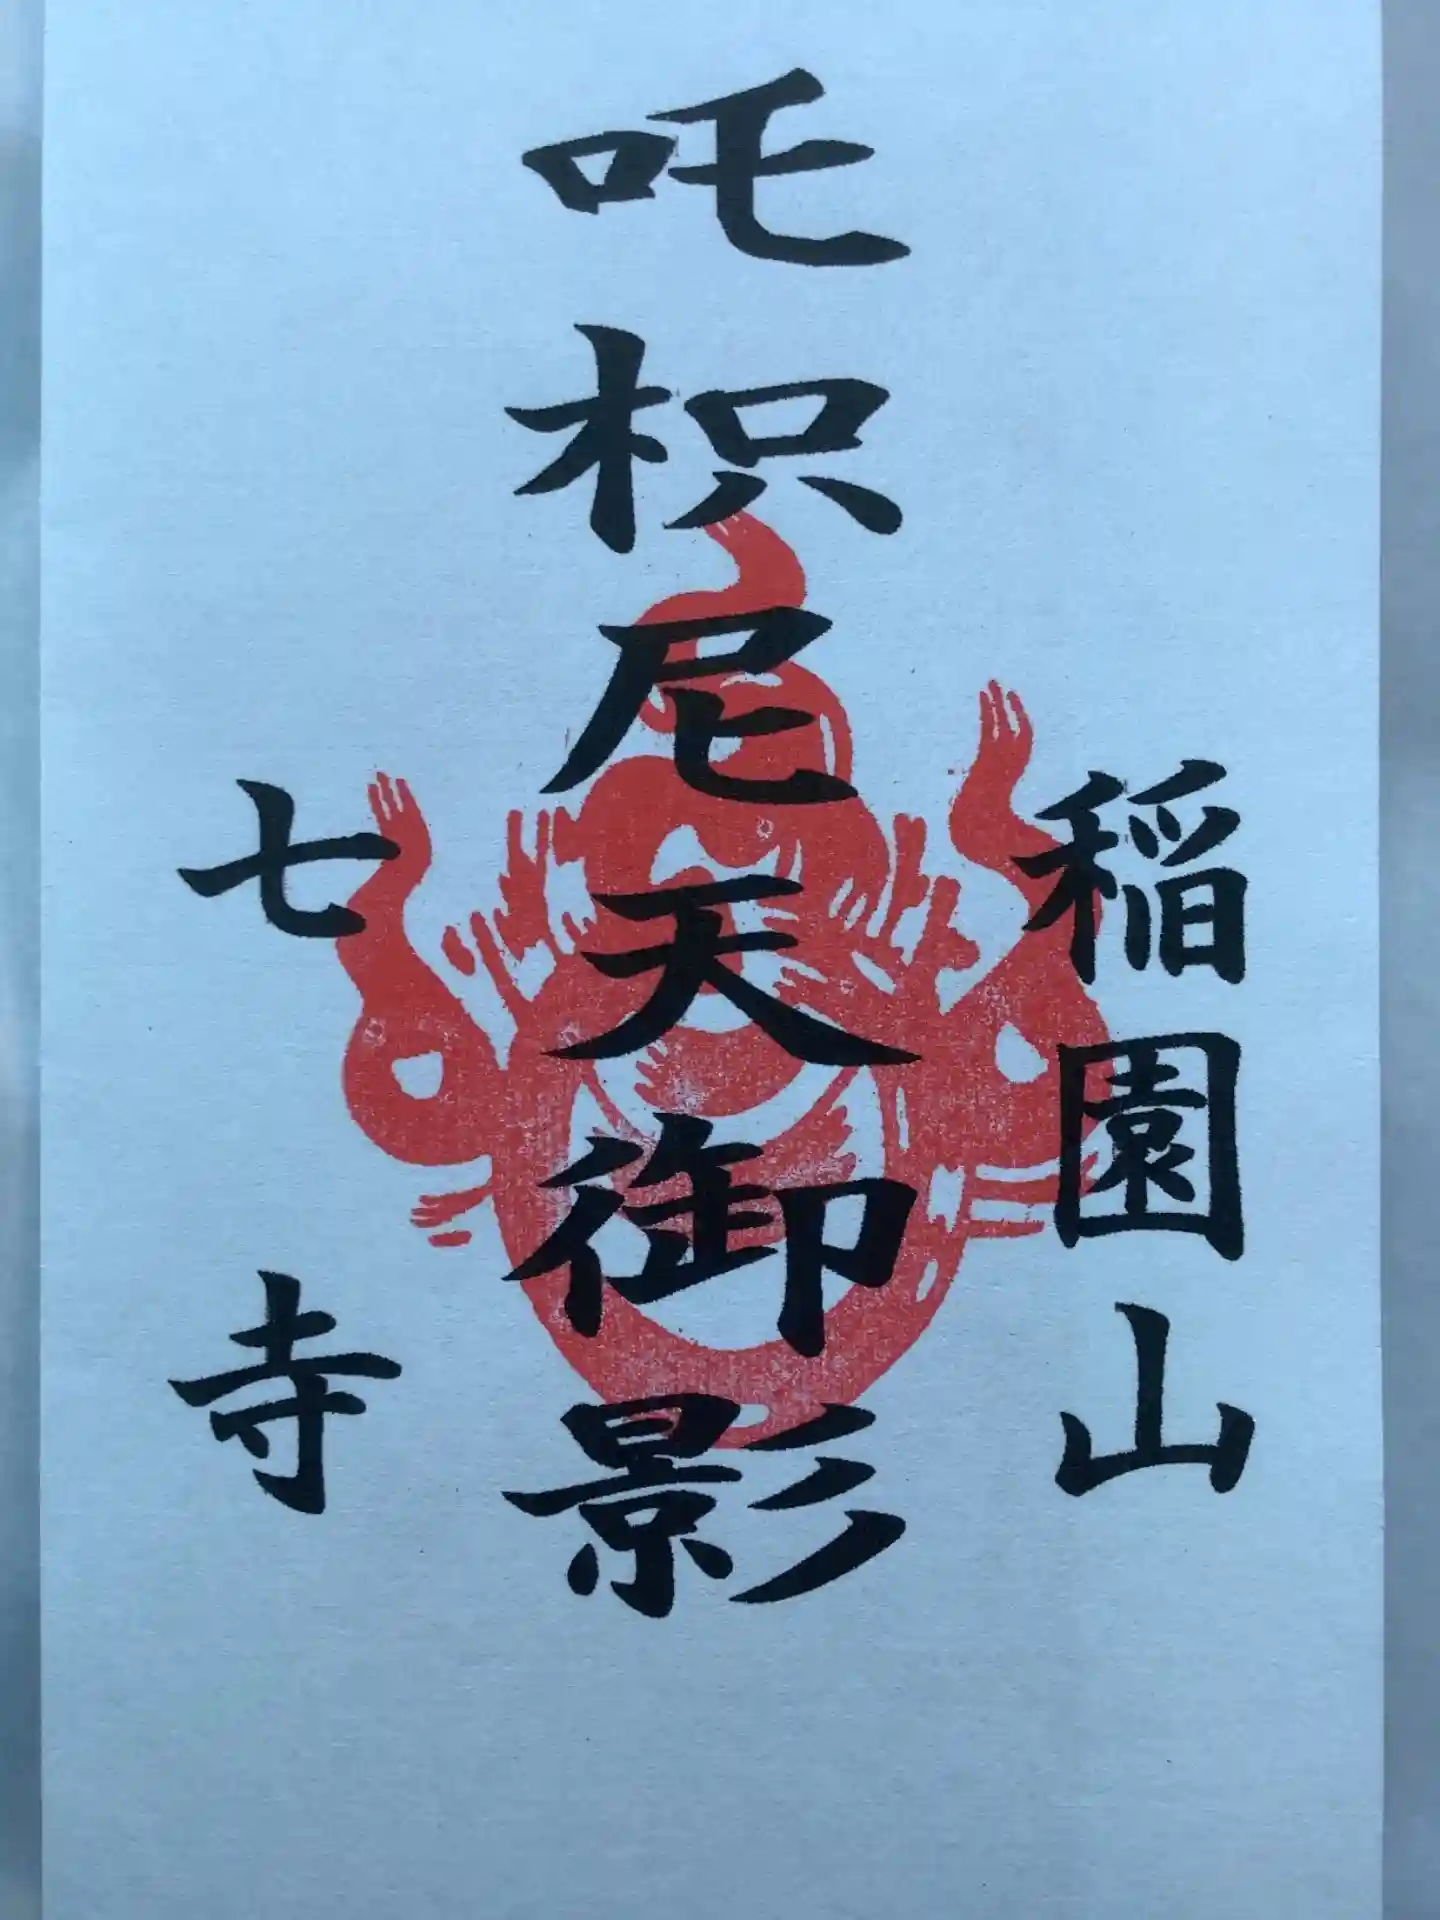 稲園山
吒枳尼天御影
七寺